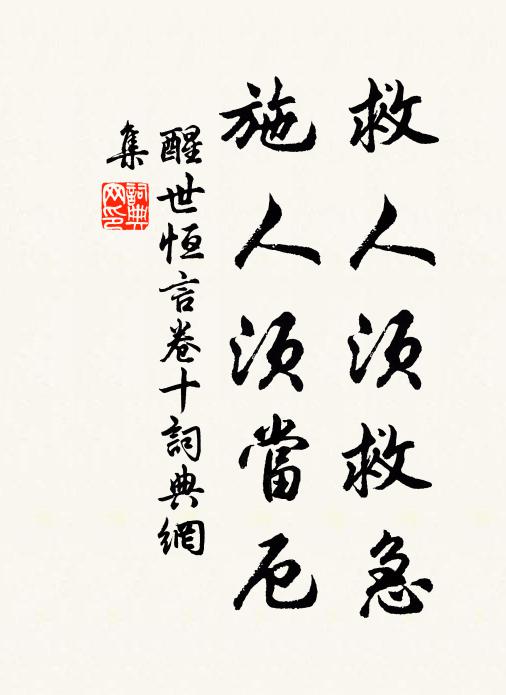 救人須救急
施人須當厄
醒世恒言卷十詞典網
集
詞典网印